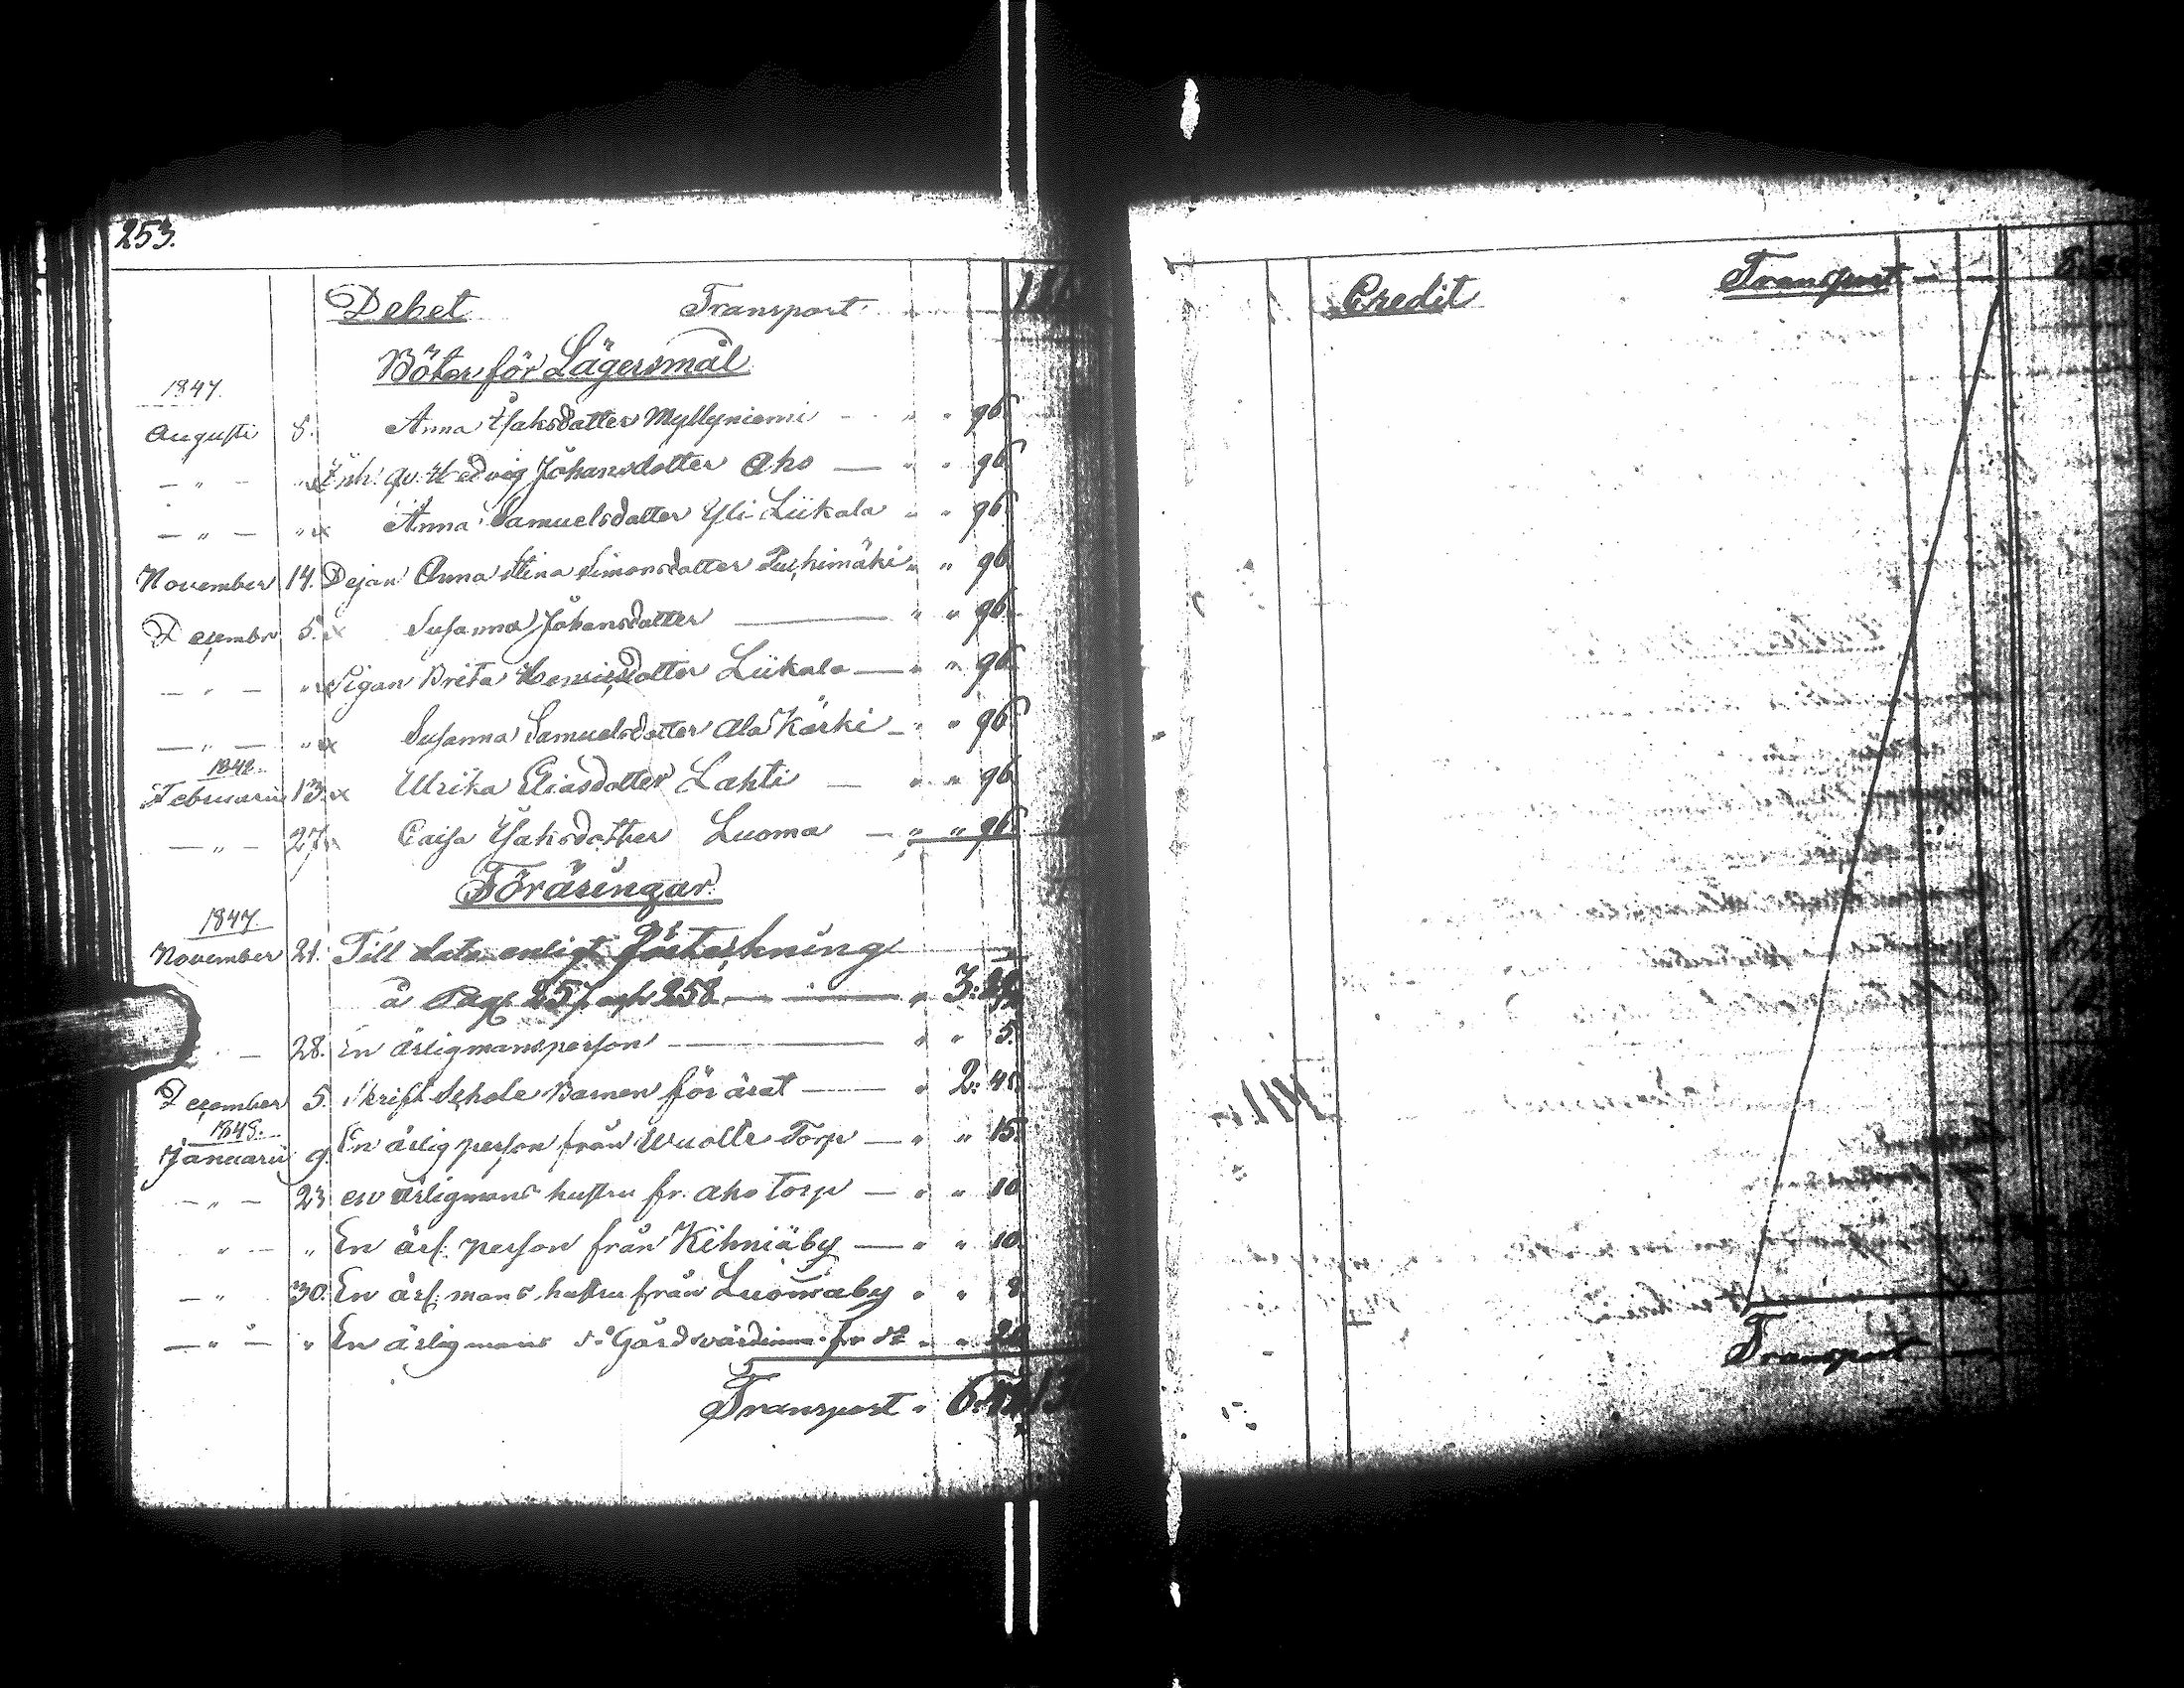 253.
Debet Transport
Böter för Lägersmål
1847.
Augusti 8. Anna Isaksdotter Myllyniemi — " " 96
— " — " x Inh: qv: Hedvig Johansdotter Aho — " " 96
— " — " x Anna Samuelsdotter Yli Liikala " " 96
November 14. Dejan Anna Stina Simonsdotter " " 96
December 5. x Susanna Johansdotter — " " 96
— " — " x Pigan Brita Henricsdotter Liikala — " " 96
— " — " x Susanna Samuelsdotter Ala Kärki — " " 96
1848.
Februarii 13. x Ulrika Eliasdotter Lahti — " " 96
— " — 27. x Caisa Isaksdotter Luoma — " " 96
Föräringar.
1847.
November 21. Till dato enligt förtekning
å Pag. 257 och 258 — " 3:
— 28. En ärligmansperson — " " 5.
December 5. Skrift Schole Barnen för året — " 2: 45
1848.
Januarii 9. En ärlig person från Wuolle Torp — " " 15.
— " — 23 en ärligmans hustru fr. Aho Torp — " " 10
" — " En ärl: person från Kihniäby — " " 10.
— " 30. En ärl: mans hustru från Luomaby " " 8
— " — " En ärligmans d:o Gårdsvärdinna fr d:o " " 20
Transport "
Credit Transport —
Transport —